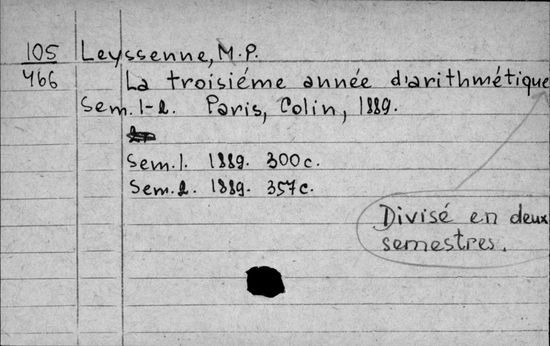 105 Leyssenne, M.P.
466 La troisiéme année d'arithmétique
Sem. 1-2. Paris, Colin, 1889.
Sem. 1. 1889. 300c.
Sem. 2. 1889. 357c.
Divisé en deux
semestres.